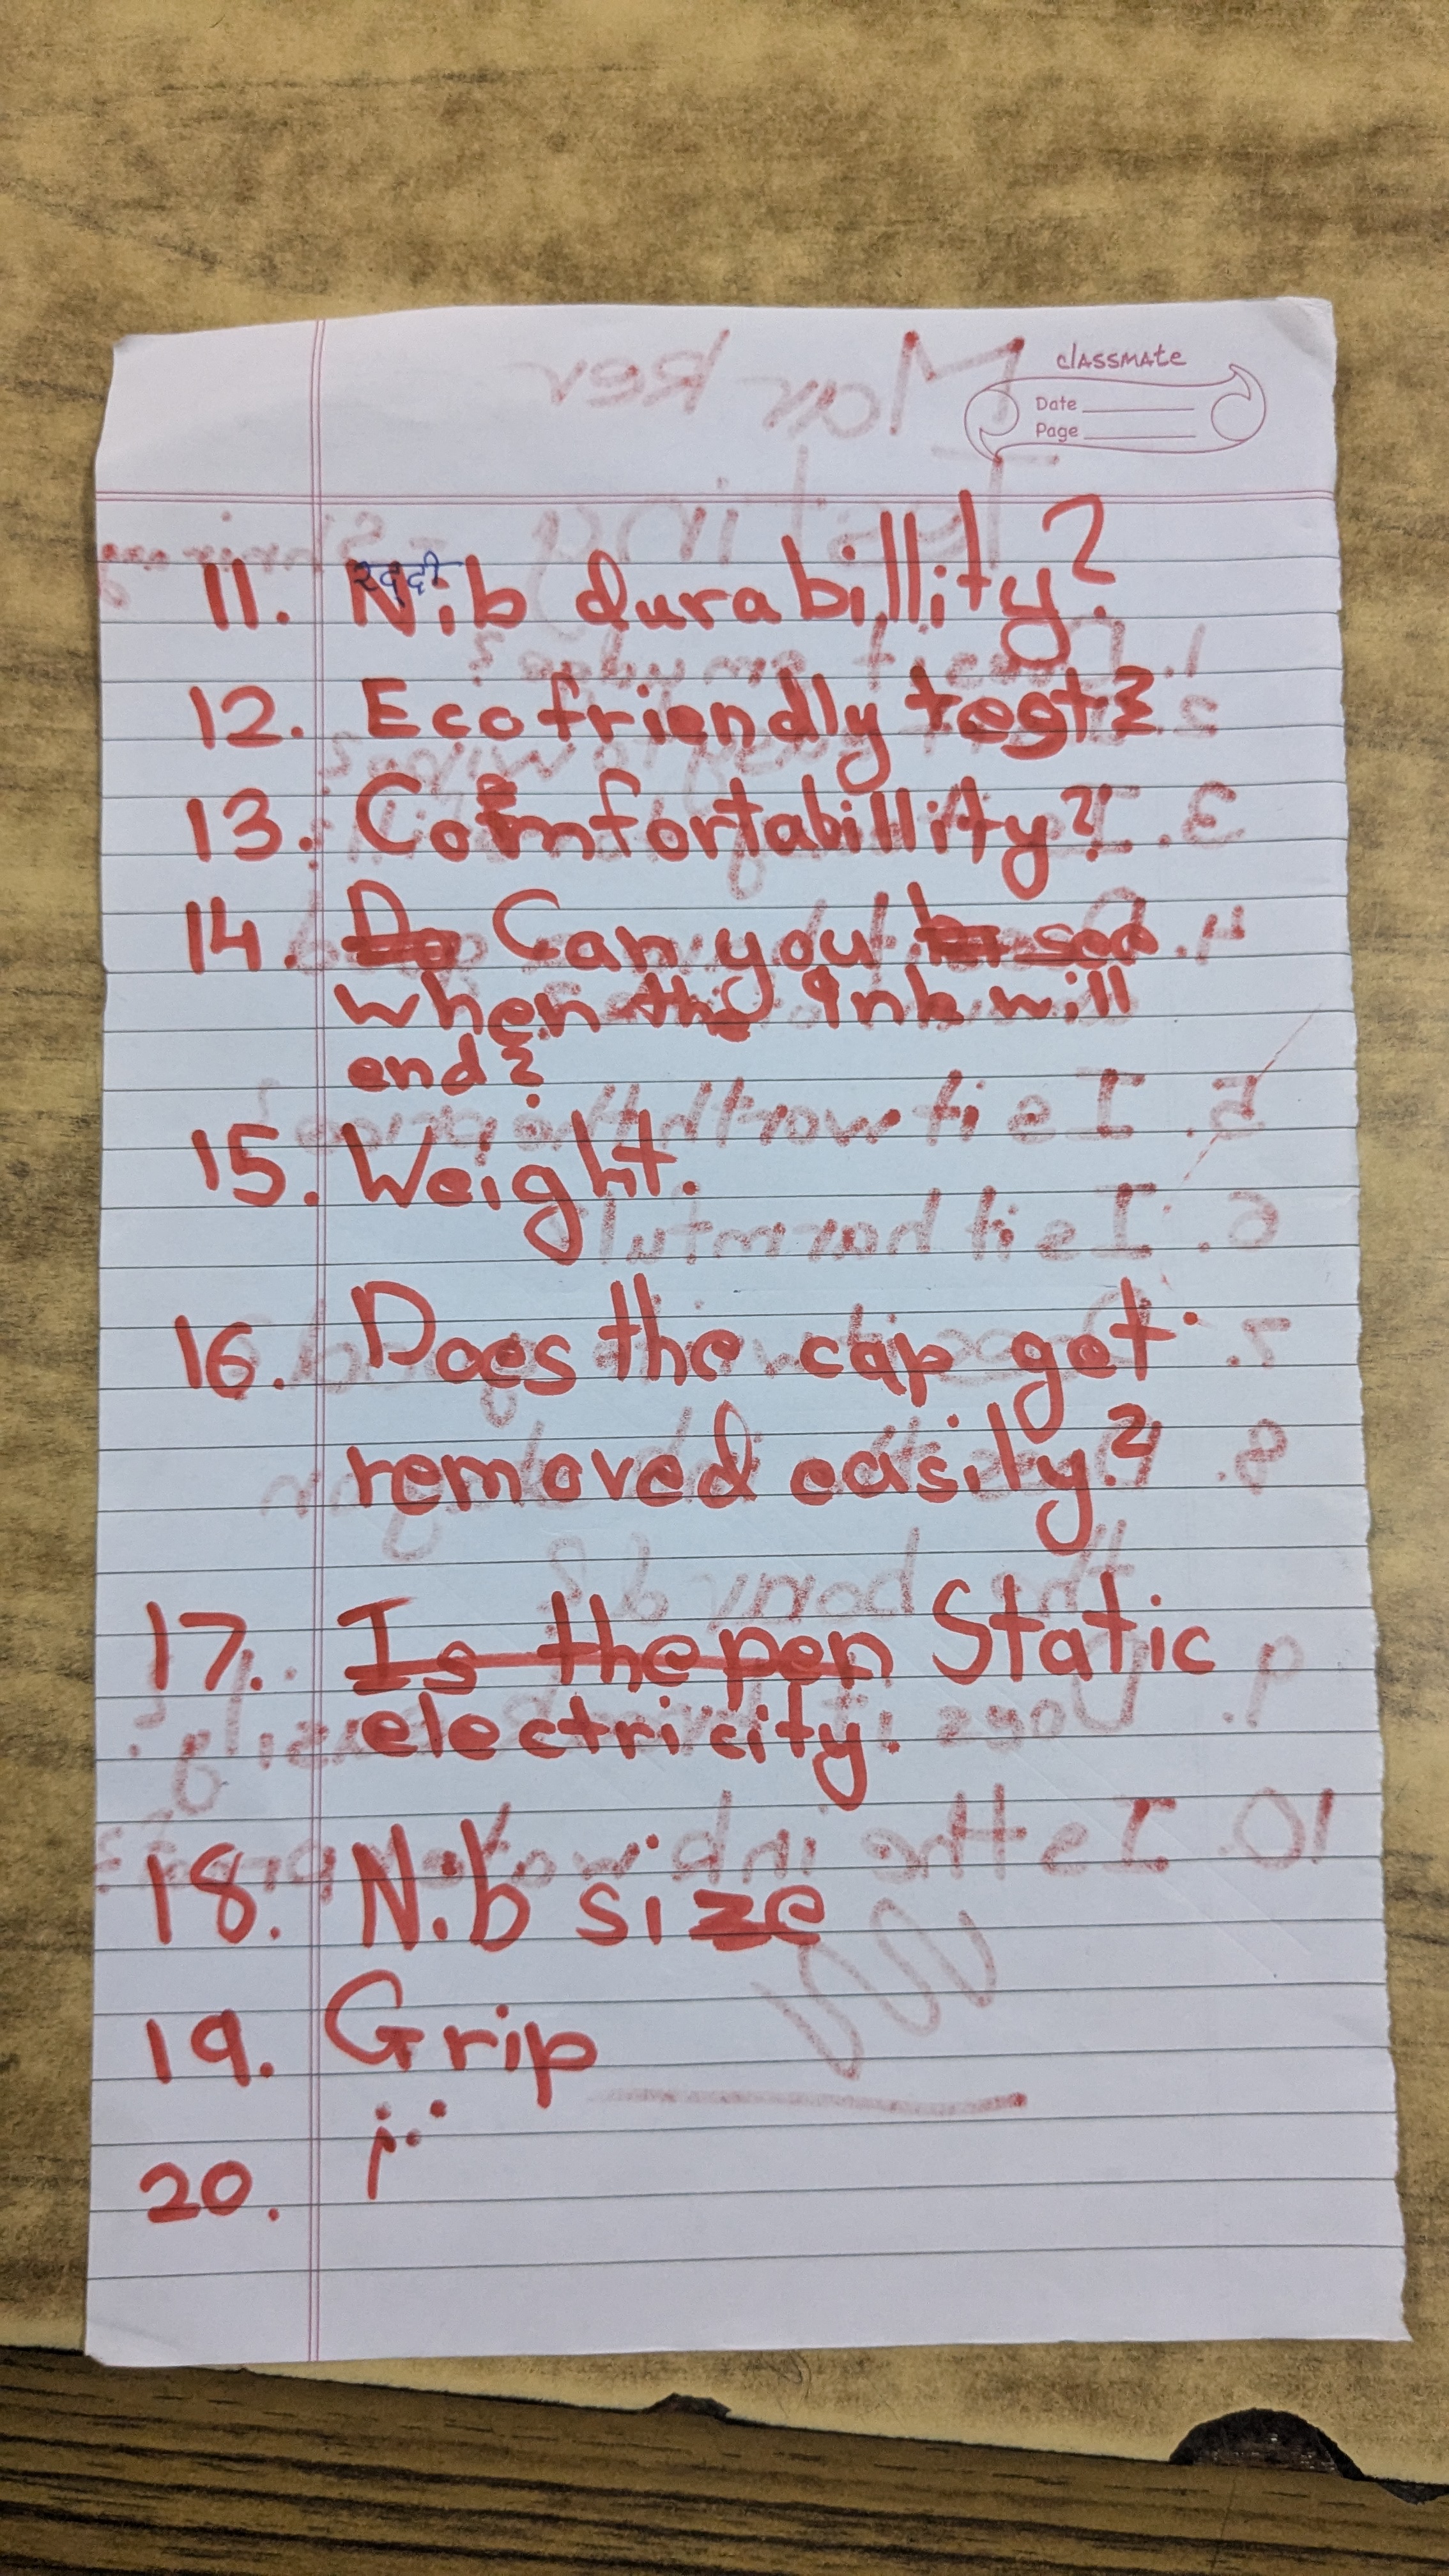 classmate
Date
Page
रद्दी
11. Nib durabillity?
12. Ecofriendly test?
13. Comfortabillity?
14. Do Can you see
when the ink will
end?
15. Weight.
16. Does the cap get
removed easily?
17. Is the pen Static
electricity.
18. Nib size
19. Grip
20.